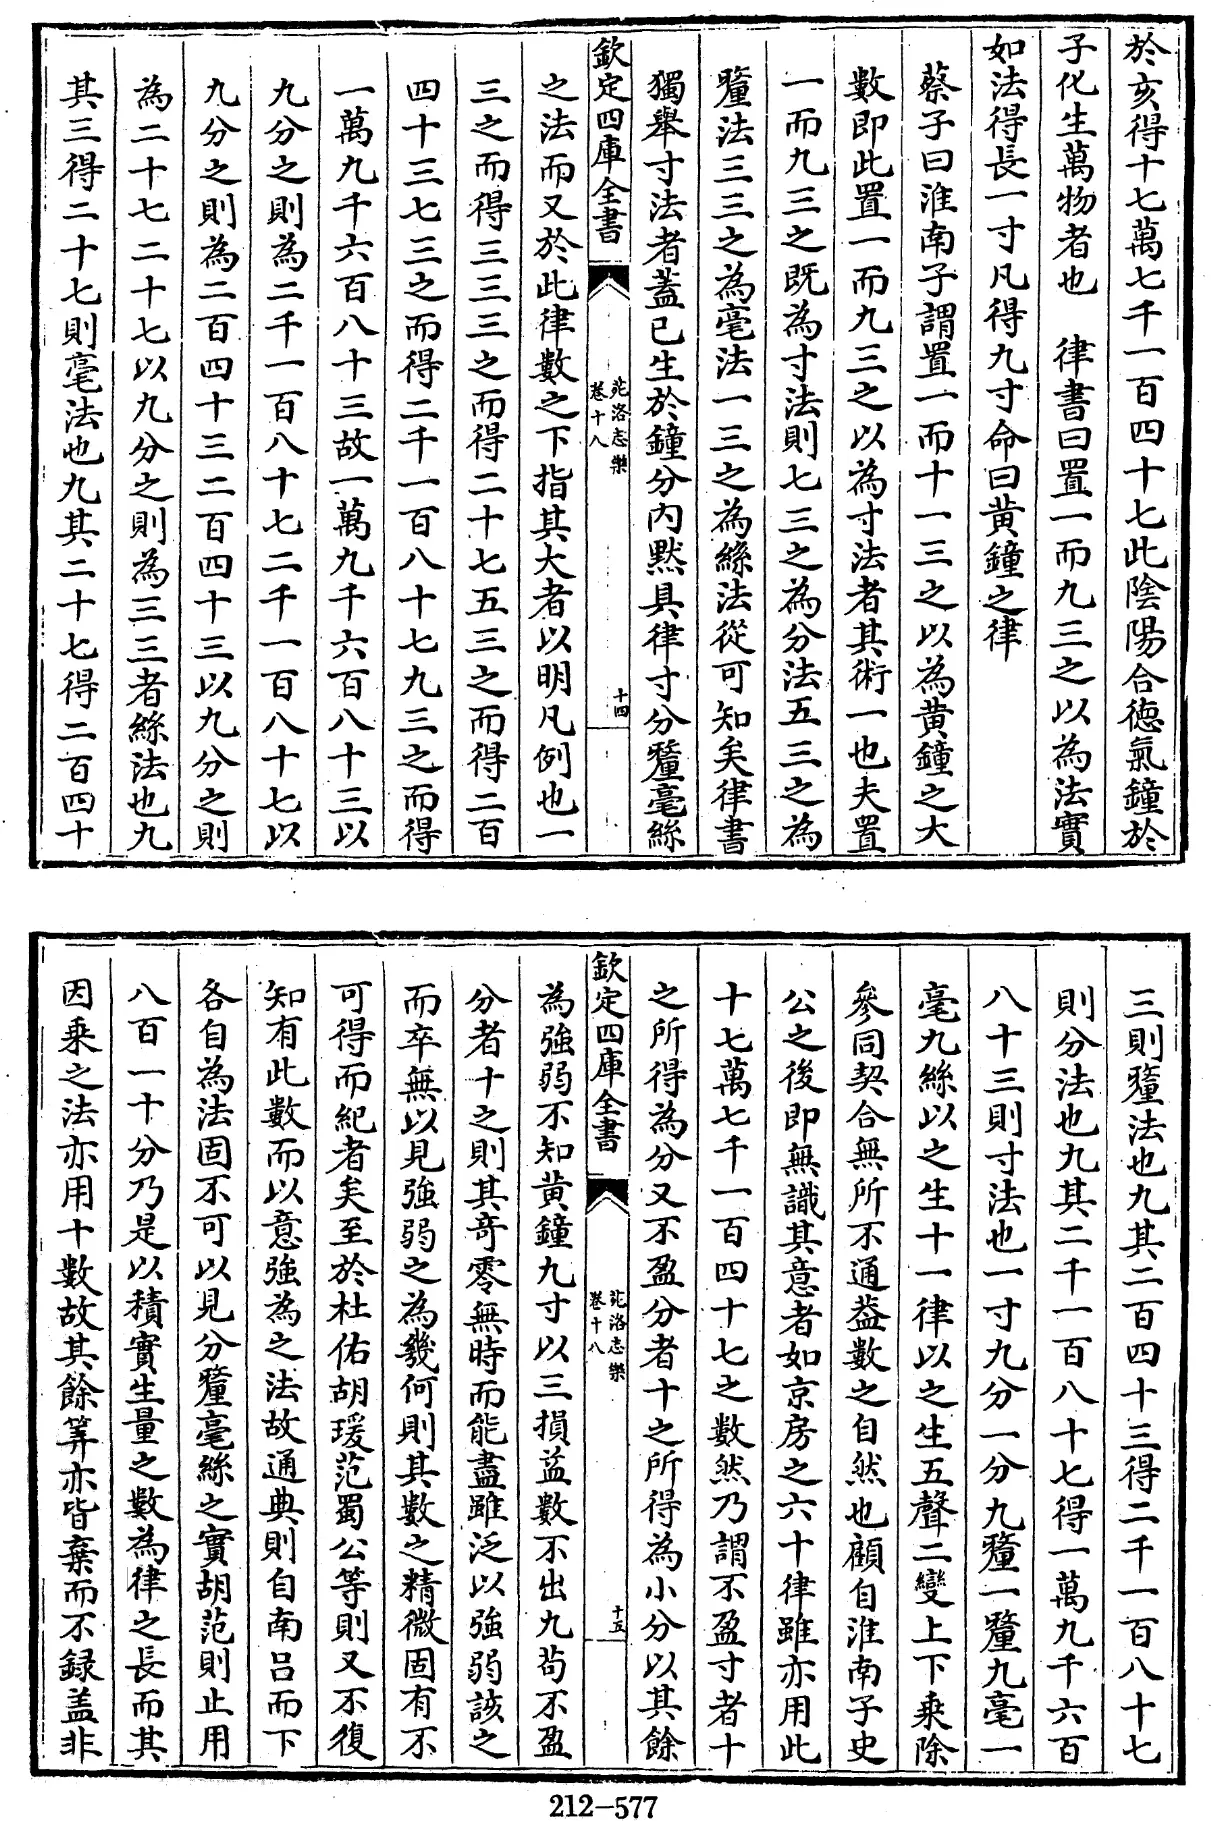 於亥得十七萬七千一百四十七此陰陽合德氣鐘於
子化生萬物者也　律書曰置一而九三之以為法實
如法得長一寸凡得九寸命曰黄鐘之律
蔡子曰淮南子謂置一而十一三之以為黄鐘之大
數即此置一而九三之以為寸法者其術一也夫置
一而九三之既為寸法則七三之為分法五三之為
釐法三三之為毫法一三之為絲法從可知矣律書
獨舉寸法者蓋已生於鐘分内黙具律寸分釐毫絲
欽定四庫全書
苑洛志樂
卷十八
十四
之法而又於此律數之下指其大者以明凡例也一
三之而得三三三之而得二十七五三之而得二百
四十三七三之而得二千一百八十七九三之而得
一萬九千六百八十三故一萬九千六百八十三以
九分之則為二千一百八十七二千一百八十七以
九分之則為二百四十三二百四十三以九分之則
為二十七二十七以九分之則為三三者絲法也九
其三得二十七則毫法也九其二十七得二百四十
三則釐法也九其二百四十三得二千一百八十七
則分法也九其二千一百八十七得一萬九千六百
八十三則寸法也一寸九分一分九釐一釐九毫一
毫九絲以之生十一律以之生五聲二變上下乘除
參同契合無所不通蓋數之自然也顧自淮南子史
公之後即無識其意者如京房之六十律雖亦用此
十七萬七千一百四十七之數然乃謂不盈寸者十
之所得為分又不盈分者十之所得為小分以其餘
欽定四庫全書
苑洛志樂
卷十八
十五
為強弱不知黄鐘九寸以三損益數不出九茍不盈
分者十之則其奇零無時而能盡雖泛以強弱該之
而卒無以見強弱之為幾何則其數之精微固有不
可得而紀者矣至於杜佑胡瑗范蜀公等則又不復
知有此數而以意強為之法故通典則自南吕而下
各自為法固不可以見分釐毫絲之實胡范則止用
八百一十分乃是以積實生量之數為律之長而其
因乗之法亦用十數故其餘筭亦皆棄而不録盖非
212-577